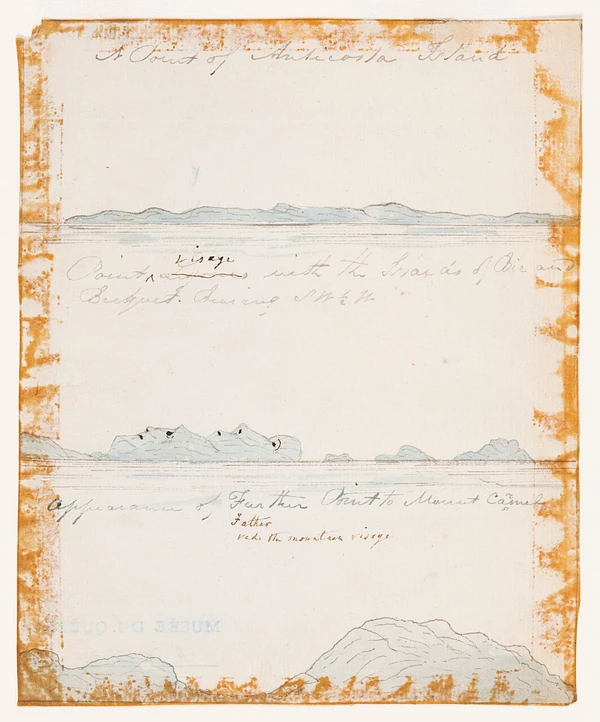 A Point of Anticosta Island
visage
Point with the Islands of Bic and
Bicquet. bearing S W ½ W
Appearance of Further Point to Mount Camel
Father
vide the mountain visage
MUSÉE DU QUÉ